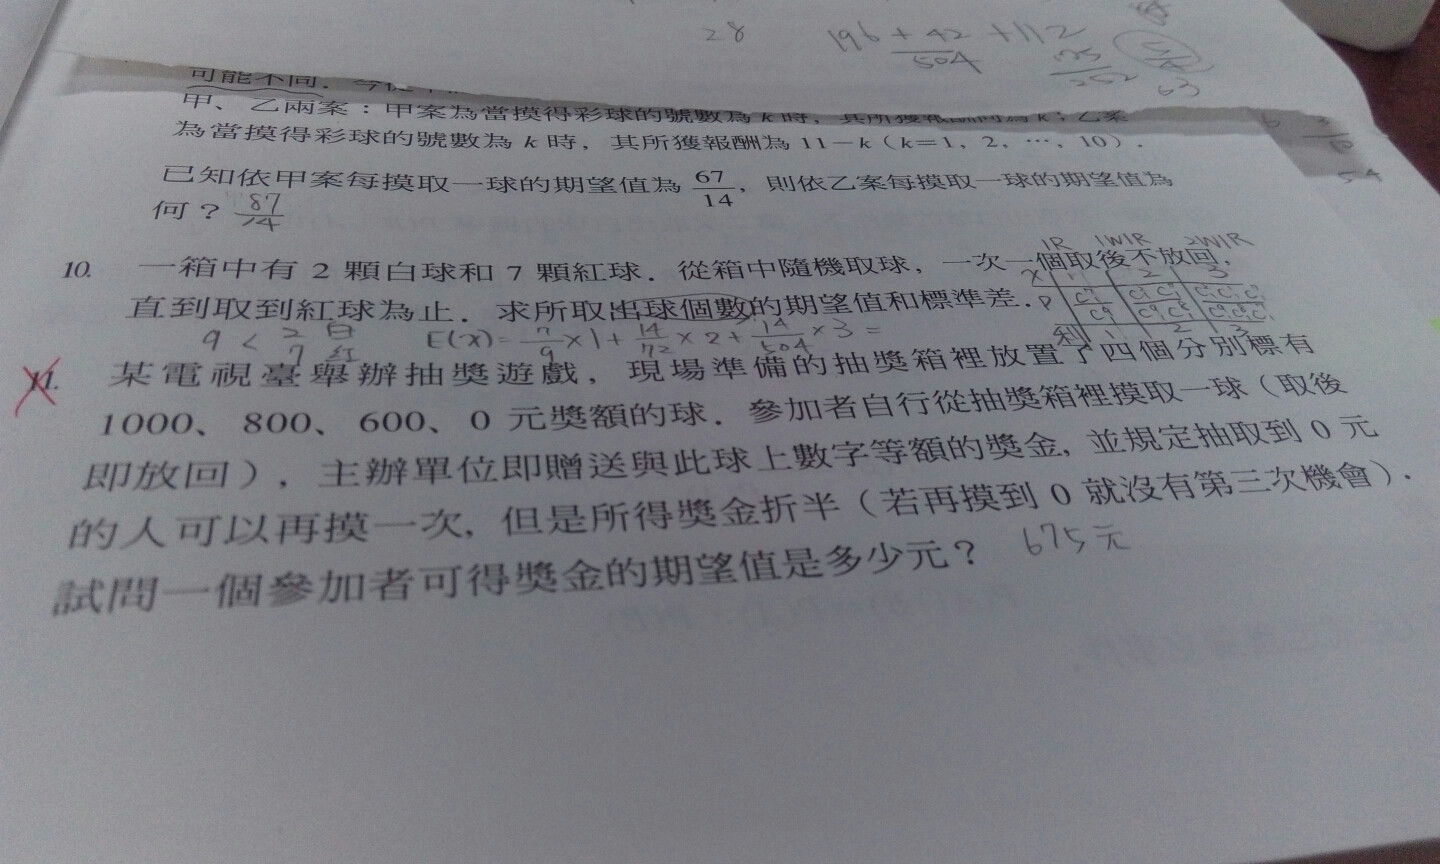 28
196 + 42 + 112
504
175
252
5
63
3
10
54
可能不同．
甲、乙兩案：甲案為當摸得彩球的號數為 k 時，其所獲報酬同為 k；乙案
為當摸得彩球的號數為 k 時，其所獲報酬為 11－k（k＝1，2，…，10）．
已知依甲案每摸取一球的期望值為 67/14，則依乙案每摸取一球的期望值為
何？ 87/14
1R 1W1R 2W1R
10. 一箱中有 2 顆白球和 7 顆紅球．從箱中隨機取球，一次一個取後不放回，
x 1 2 3
直到取到紅球為止．求所取出球個數的期望值和標準差．P
9 < 2 白 7 紅 E(x) = 7/9 × 1 + 14/72 × 2 + 14/504 × 3 =
利 1 2 3
11. 某電視臺舉辦抽獎遊戲，現場準備的抽獎箱裡放置了四個分別標有
1000、800、600、0 元獎額的球．參加者自行從抽獎箱裡摸取一球（取後
即放回），主辦單位即贈送與此球上數字等額的獎金，並規定抽取到 0 元
的人可以再摸一次，但是所得獎金折半（若再摸到 0 就沒有第三次機會）．
試問一個參加者可得獎金的期望值是多少元？ 675元